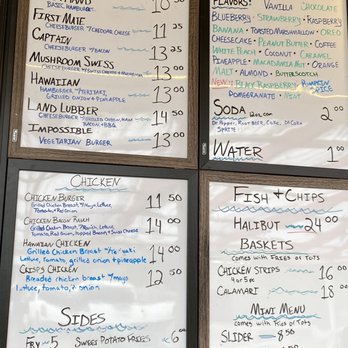 Basic Hamburger 10 50
First Mate 11 25
Cheeseburger w/Cheddar Cheese
Captain 13 25
Cheeseburger w/Bacon
Mushroom Swiss 13 00
Hawaiian 13 00
Hamburger w/Teriyaki,
Grilled Onion & Pineapple
Land Lubber 14 50
Cheeseburger w/Grilled Onion, Ham,
Bacon & BBQ
Impossible 13 00
Vegetarian Burger
Flavors: Vanilla Chocolate
Blueberry · Strawberry · Raspberry
Banana · Toasted Marshmallow · Oreo
Cheesecake · Peanut Butter · Coffee
White Peach · Coconut · Caramel
Pineapple · Macadamia Nut · Orange
Malt · Almond · Butterscotch
New: Blue Raspberry Pumpkin Spice
Pomegranate · Mint
Soda 2 00
Dr Pepper, Root Beer, Coke, Di Coke
Sprite
Water 1 00
Chicken
Chicken Burger 11 50
Grilled Chicken Breast w/Mayo, Lettuce,
Tomato, Red Onion
Chicken Bacon Ranch 14 00
Grilled Chicken Breast w/Ranch, Lettuce,
Tomato, Red Onion, Bacon & Swiss Cheese
Hawaiian Chicken 14 00
Grilled Chicken Breast w/Teriyaki
Lettuce, tomato, grilled onion & pineapple
Crispy Chicken 12 50
Breaded chicken breast w/mayo
lettuce, tomato, & onion
Sides
Fry 5 Sweet Potato Fries 6 00
Fish & Chips
Halibut 24 00
Baskets
Comes with Fries or Tots
Chicken Strips 16 00
4 or 5 pc
Calamari 18 00
Mini Menu
Comes with Fries or Tots
Slider 8 50